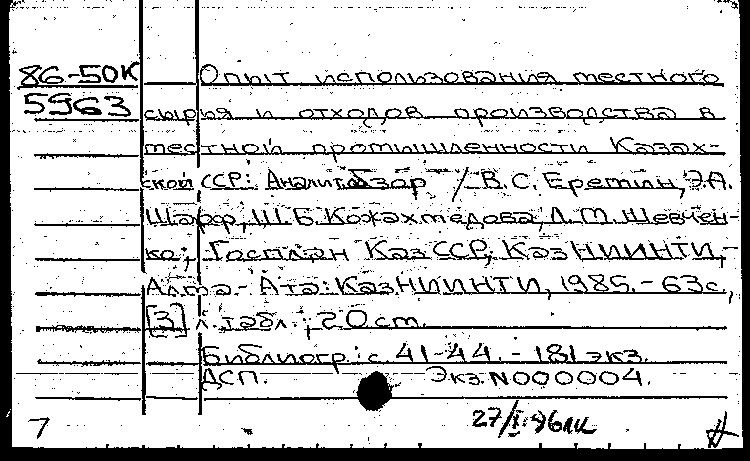 86-50К Опыт использования местного
5963 сырья и отходов производства в
местной промышленности Казах-
ской ССР: Аналит. обзор / В.С. Еремин, Э.А.
Шарф, Ш.Б. Кожахмедова, Л.М. Шевчен-
ко; Госплан КазССР, КазНИИНТИ,-
Алма-Ата: КазНИИНТИ, 1985.-63с,
[3] л. табл.; 20 см.
Библиогр.: с. 41-44. - 181 экз.
ДСП. Экз. N000004.
7